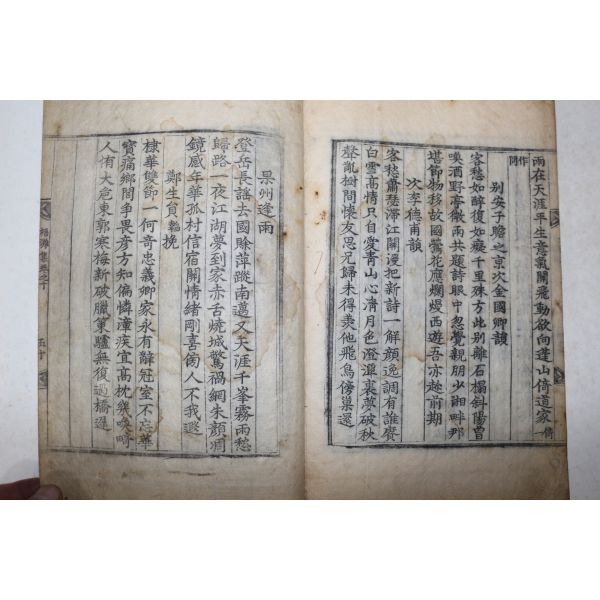 雨在天涯平生意氣關飛動欲向蓬山倚道家一作倚
別安子瞻之京次金國卿韻
客愁如醉復如癡千里殊方此別離石榻斜陽曾
喚酒野亭微雨共題詩眼中忽覺親朋少湖畔那
堪節物移故國鶯花應爛熳西遊吾亦趂前期
次李德甫韻
客愁蕭瑟滯江關謾把新詩一解顔逸調有誰賡
白雪高情只自愛青山心淸月色澄溫裏夢破秋
聲亂樹間懷友思兄歸未得羨他飛鳥傍巢還
果州逢雨
登岳長謠去國賖萍蹤南邁又天涯千峯霧雨愁
歸路一夜江湖夢到家赤舌燒城驚禍網朱顔凋
鏡感年華孤村信宿關情緖剛喜個人不我遐
鄭生員 輓
棣華雙節一何奇忠義卿家永有辭冠室不忘華
寶痛鄕閭爭畏彦方知偏憐潼疾宜高枕幾喚
人侑大危東郭寒梅新破臘策驢無復過橋遲
集卷之
五十